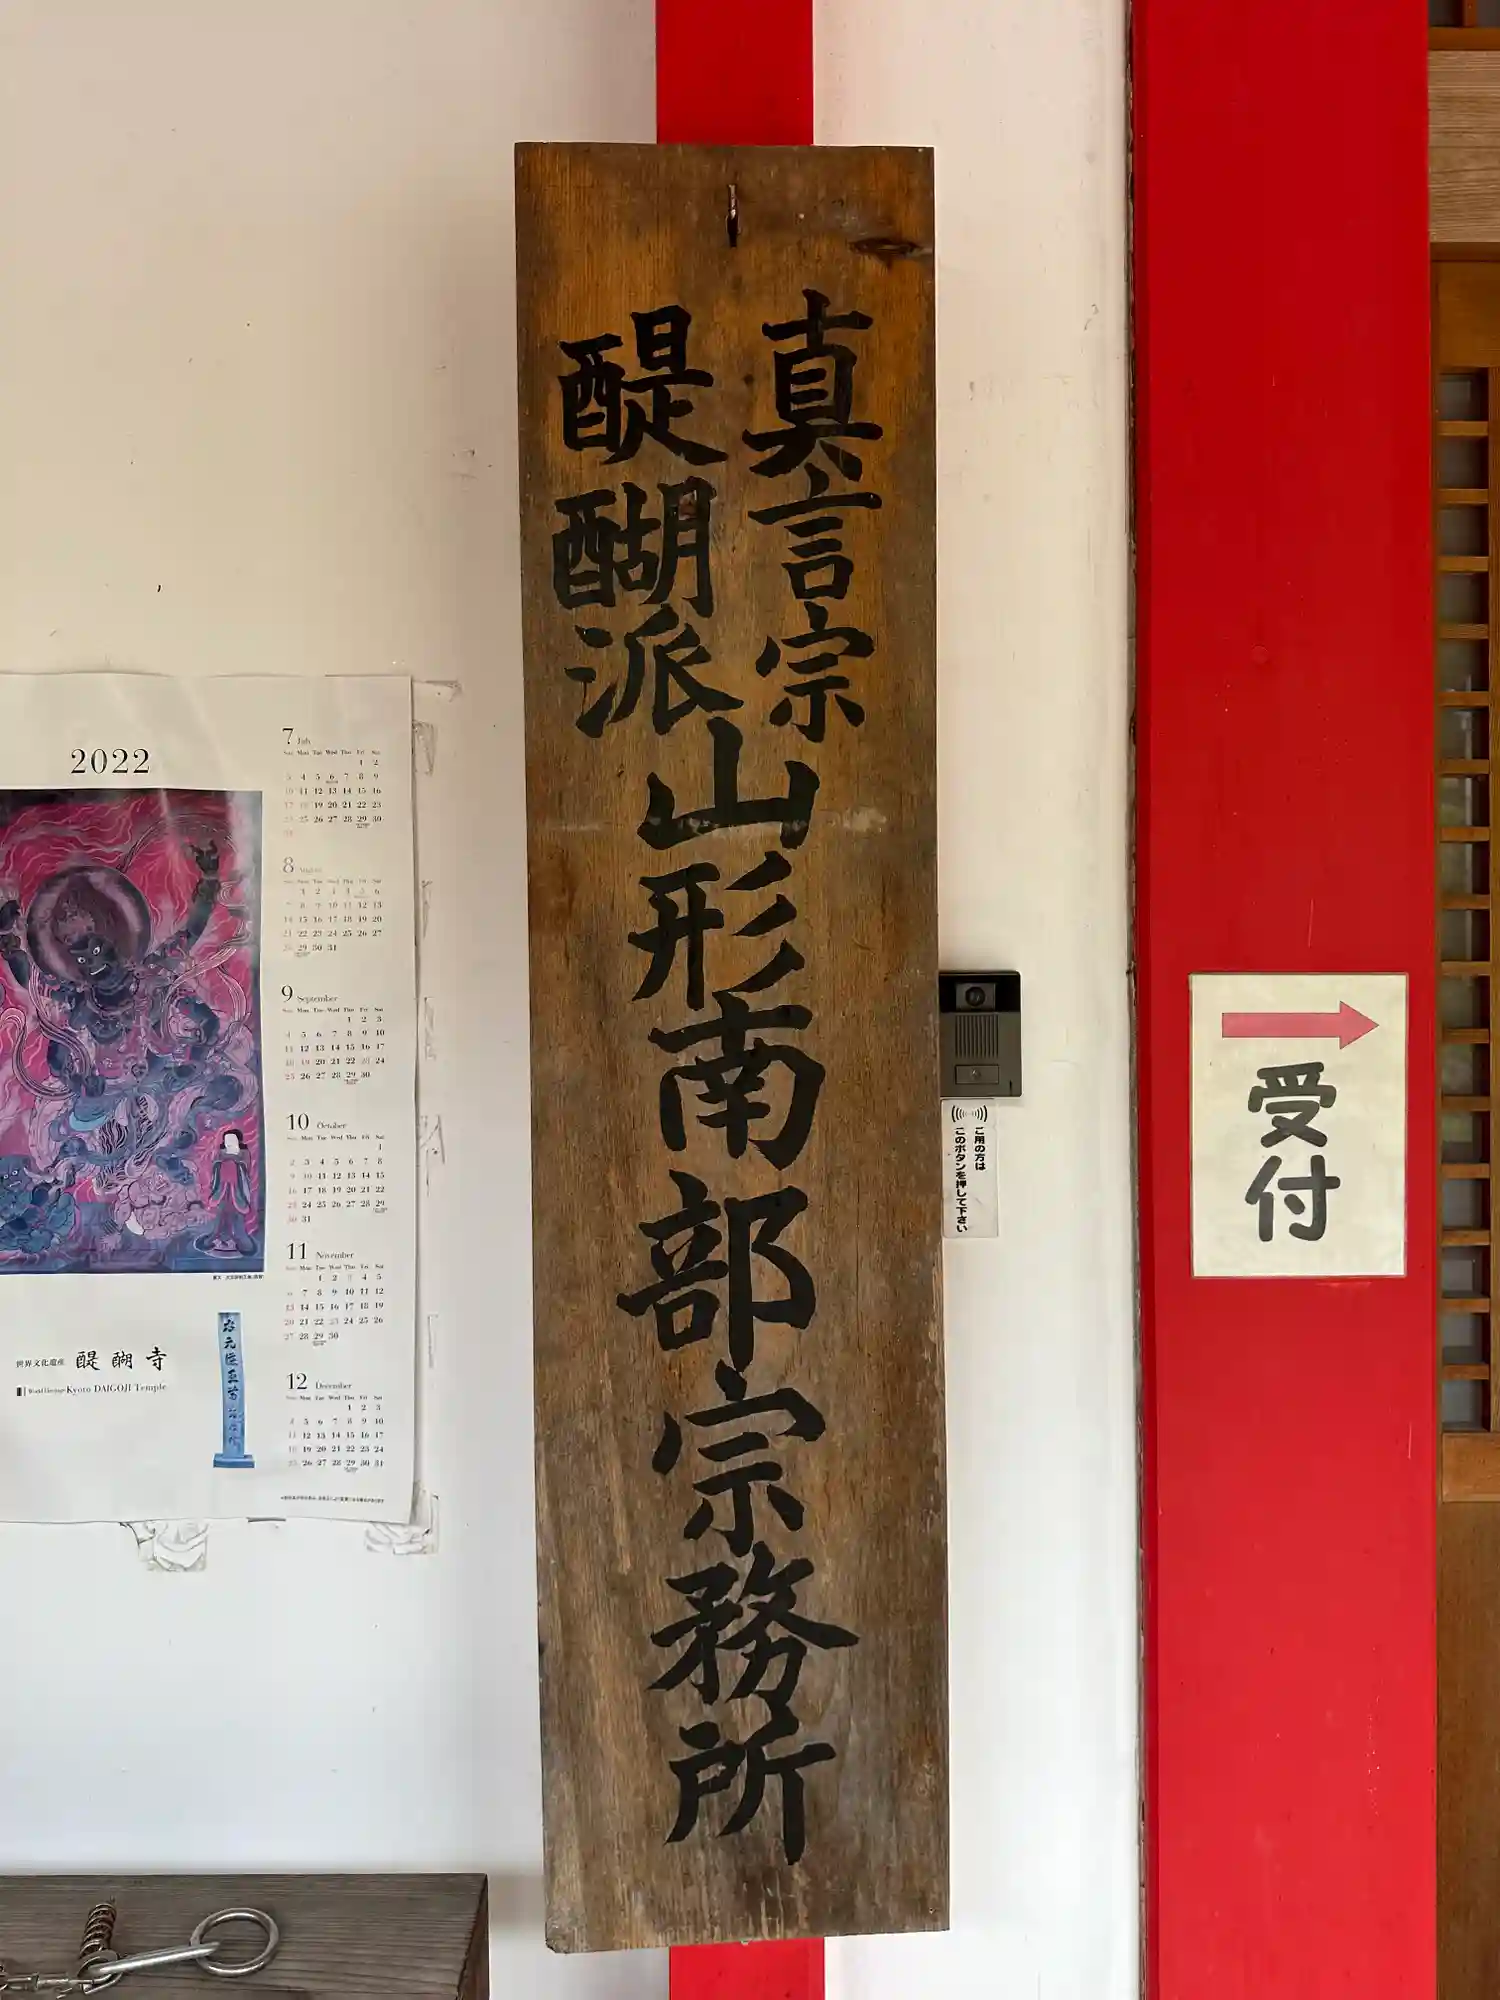 真言宗
醍醐派
山形南部宗務所
受付
ご用の方は
このボタンを押して下さい
2022
7 July
Sun Mon Tue Wed Thu Fri Sat
1 2
3 4 5 6 7 8 9
10 11 12 13 14 15 16
17 18 19 20 21 22 23
24 25 26 27 28 29 30
31
8 August
Sun Mon Tue Wed Thu Fri Sat
1 2 3 4 5 6
7 8 9 10 11 12 13
14 15 16 17 18 19 20
21 22 23 24 25 26 27
28 29 30 31
9 September
Sun Mon Tue Wed Thu Fri Sat
1 2 3
4 5 6 7 8 9 10
11 12 13 14 15 16 17
18 19 20 21 22 23 24
25 26 27 28 29 30
10 October
Sun Mon Tue Wed Thu Fri Sat
1
2 3 4 5 6 7 8
9 10 11 12 13 14 15
16 17 18 19 20 21 22
23 24 25 26 27 28 29
30 31
11 November
Sun Mon Tue Wed Thu Fri Sat
1 2 3 4 5
6 7 8 9 10 11 12
13 14 15 16 17 18 19
20 21 22 23 24 25 26
27 28 29 30
12 December
Sun Mon Tue Wed Thu Fri Sat
1 2 3
4 5 6 7 8 9 10
11 12 13 14 15 16 17
18 19 20 21 22 23 24
25 26 27 28 29 30 31
世界文化遺産 醍醐寺
World Heritage Kyoto DAIGOJI Temple